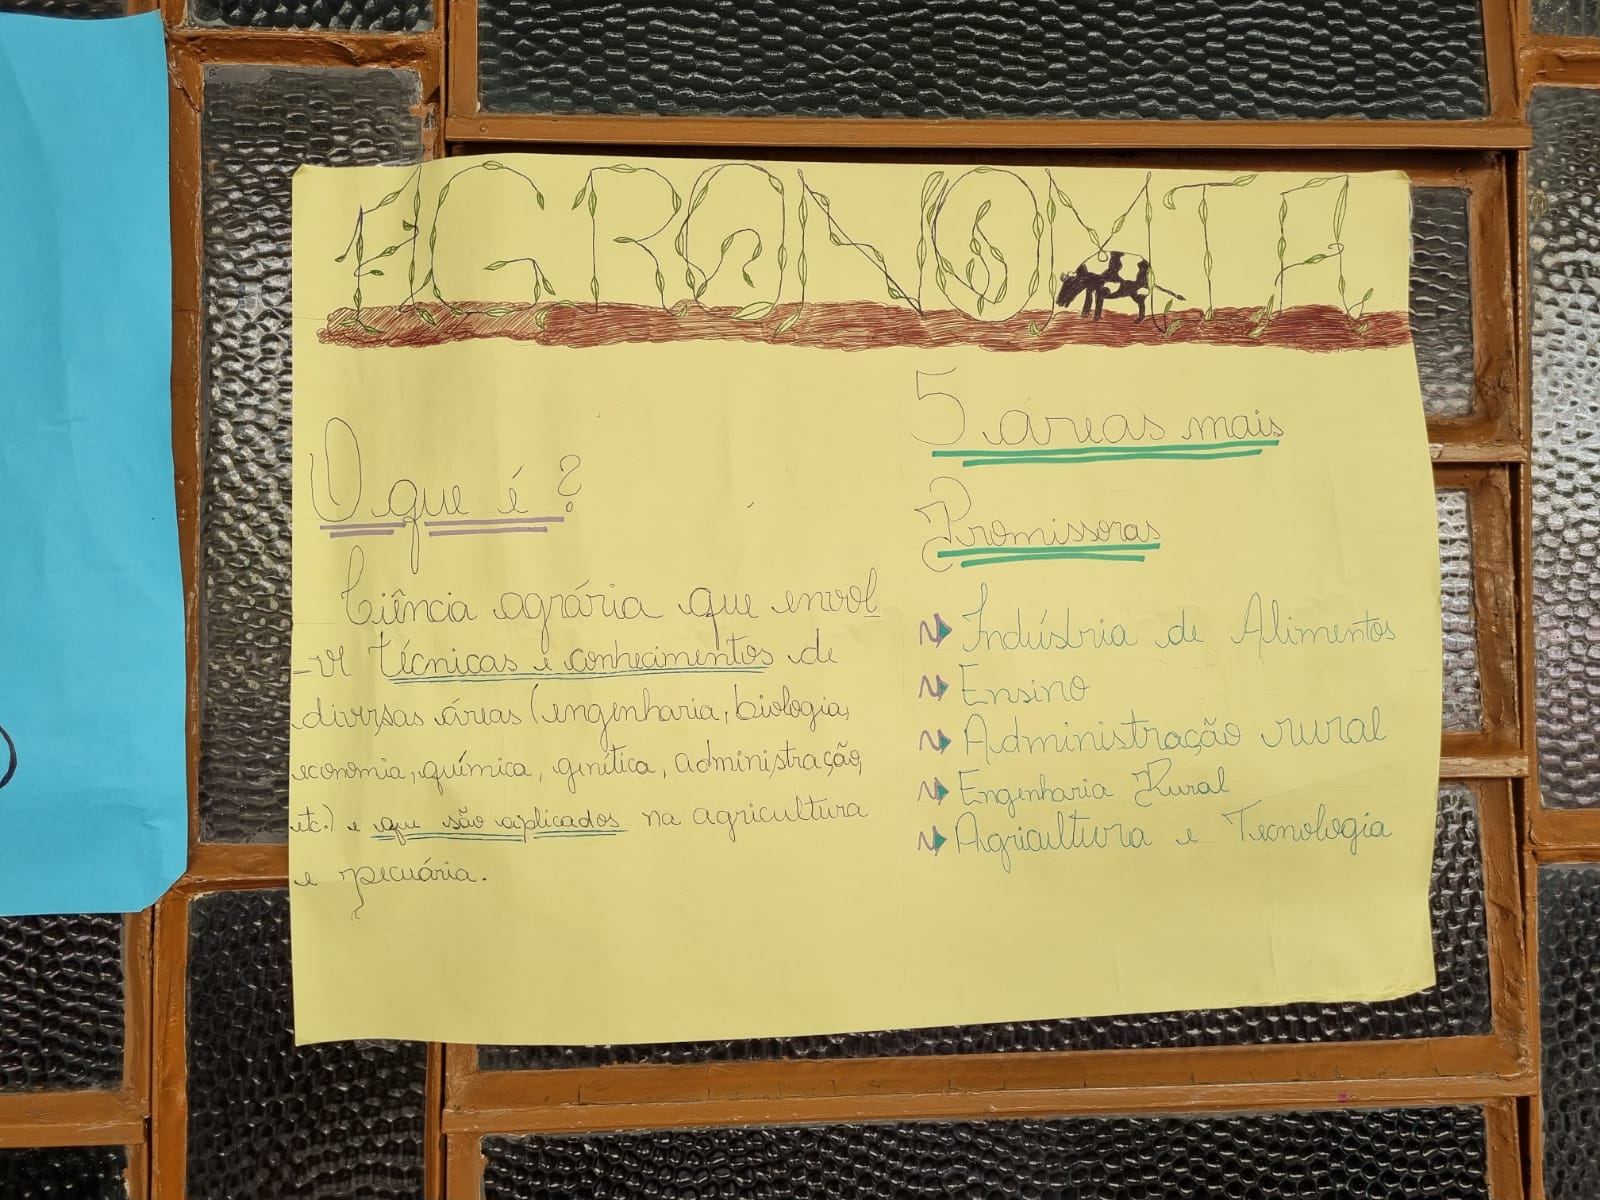 AGRONOMIA
O que é?
Ciência agrária que envol
-ve técnicas e conhecimentos de
diversas áreas (engenharia, biologia,
economia, química, genética, administração,
etc.) e que são aplicados na agricultura
e pecuária.
5 areas mais
Promissoras
Indústria de Alimentos
Ensino
Administração rural
Engenharia Rural
Agricultura e Tecnologia